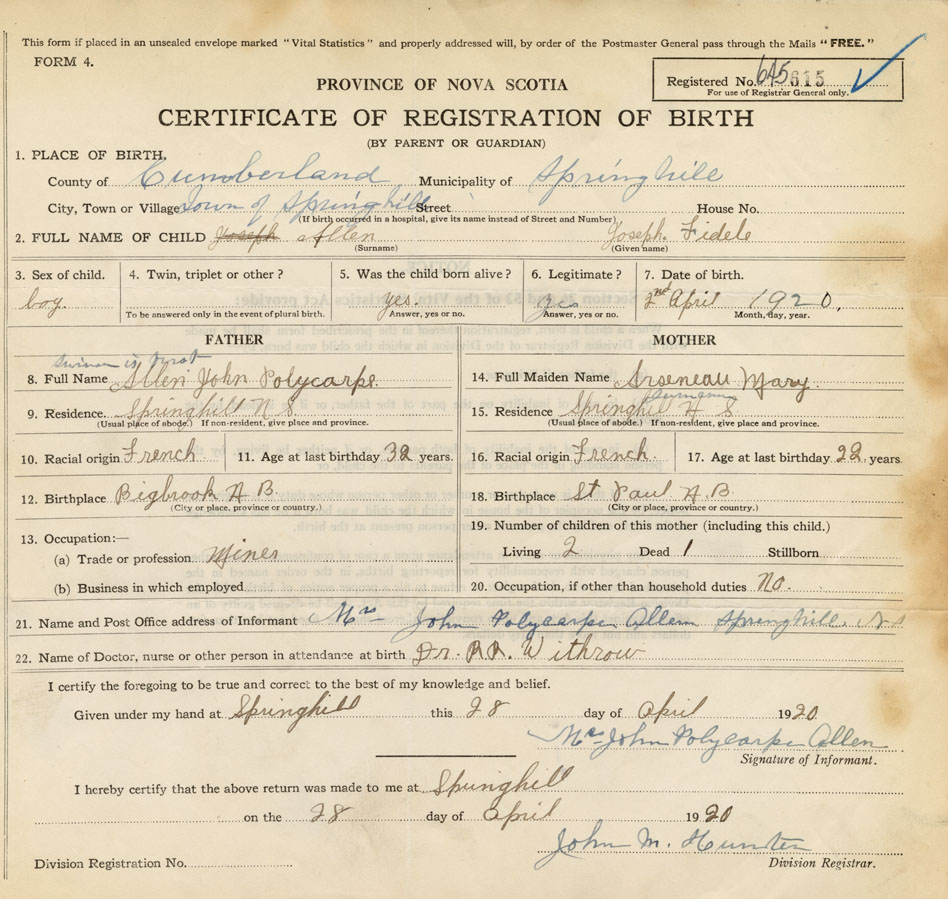 This form if placed in an unsealed envelope marked "Vital Statistics" and properly addressed will, by order of the Postmaster General pass through the Mails "FREE."
FORM 4.
Registered No. 615
For use of Registrar General only.
PROVINCE OF NOVA SCOTIA
CERTIFICATE OF REGISTRATION OF BIRTH
(BY PARENT OR GUARDIAN)
1. PLACE OF BIRTH.
County of Cumberland Municipality of Springhill
City, Town or Village Town of Springhill Street House No.
(If birth occurred in a hospital, give its name instead of Street and Number)
2. FULL NAME OF CHILD Joseph Allen Joseph Fidele
(Surname) (Given name)
3. Sex of child. 4. Twin, triplet or other? 5. Was the child born alive? 6. Legitimate? 7. Date of birth.
boy yes. yes 2nd April 1920,
To be answered only in the event of plural birth. Answer, yes or no. Answer, yes or no. Month, day, year.
FATHER MOTHER
8. Full Name Allen John Polycarpe 14. Full Maiden Name Arseneau Mary
9. Residence. Springhill N S 15. Residence Springhill N S
(Usual place of abode.) If non-resident, give place and province. (Usual place of abode.) If non-resident, give place and province.
10. Racial origin French 11. Age at last birthday 32 years. 16. Racial origin French 17. Age at last birthday 22 years.
12. Birthplace Bigbrook N B 18. Birthplace St Paul N.B.
(City or place, province or country.) (City or place, province or country.)
13. Occupation:— 19. Number of children of this mother (including this child.)
(a) Trade or profession Miner Living 2 Dead 1 Stillborn
(b) Business in which employed 20. Occupation, if other than household duties No.
21. Name and Post Office address of Informant Mrs John Polycarpe Allen Springhill. N S
22. Name of Doctor, nurse or other person in attendance at birth Dr. Withrow
I certify the foregoing to be true and correct to the best of my knowledge and belief.
Given under my hand at Springhill this 28 day of April 1920
Mrs John Polycarpe Allen
Signature of Informant.
I hereby certify that the above return was made to me at Springhill
on the 28 day of April 1920
John M. Hunter
Division Registration No. Division Registrar.